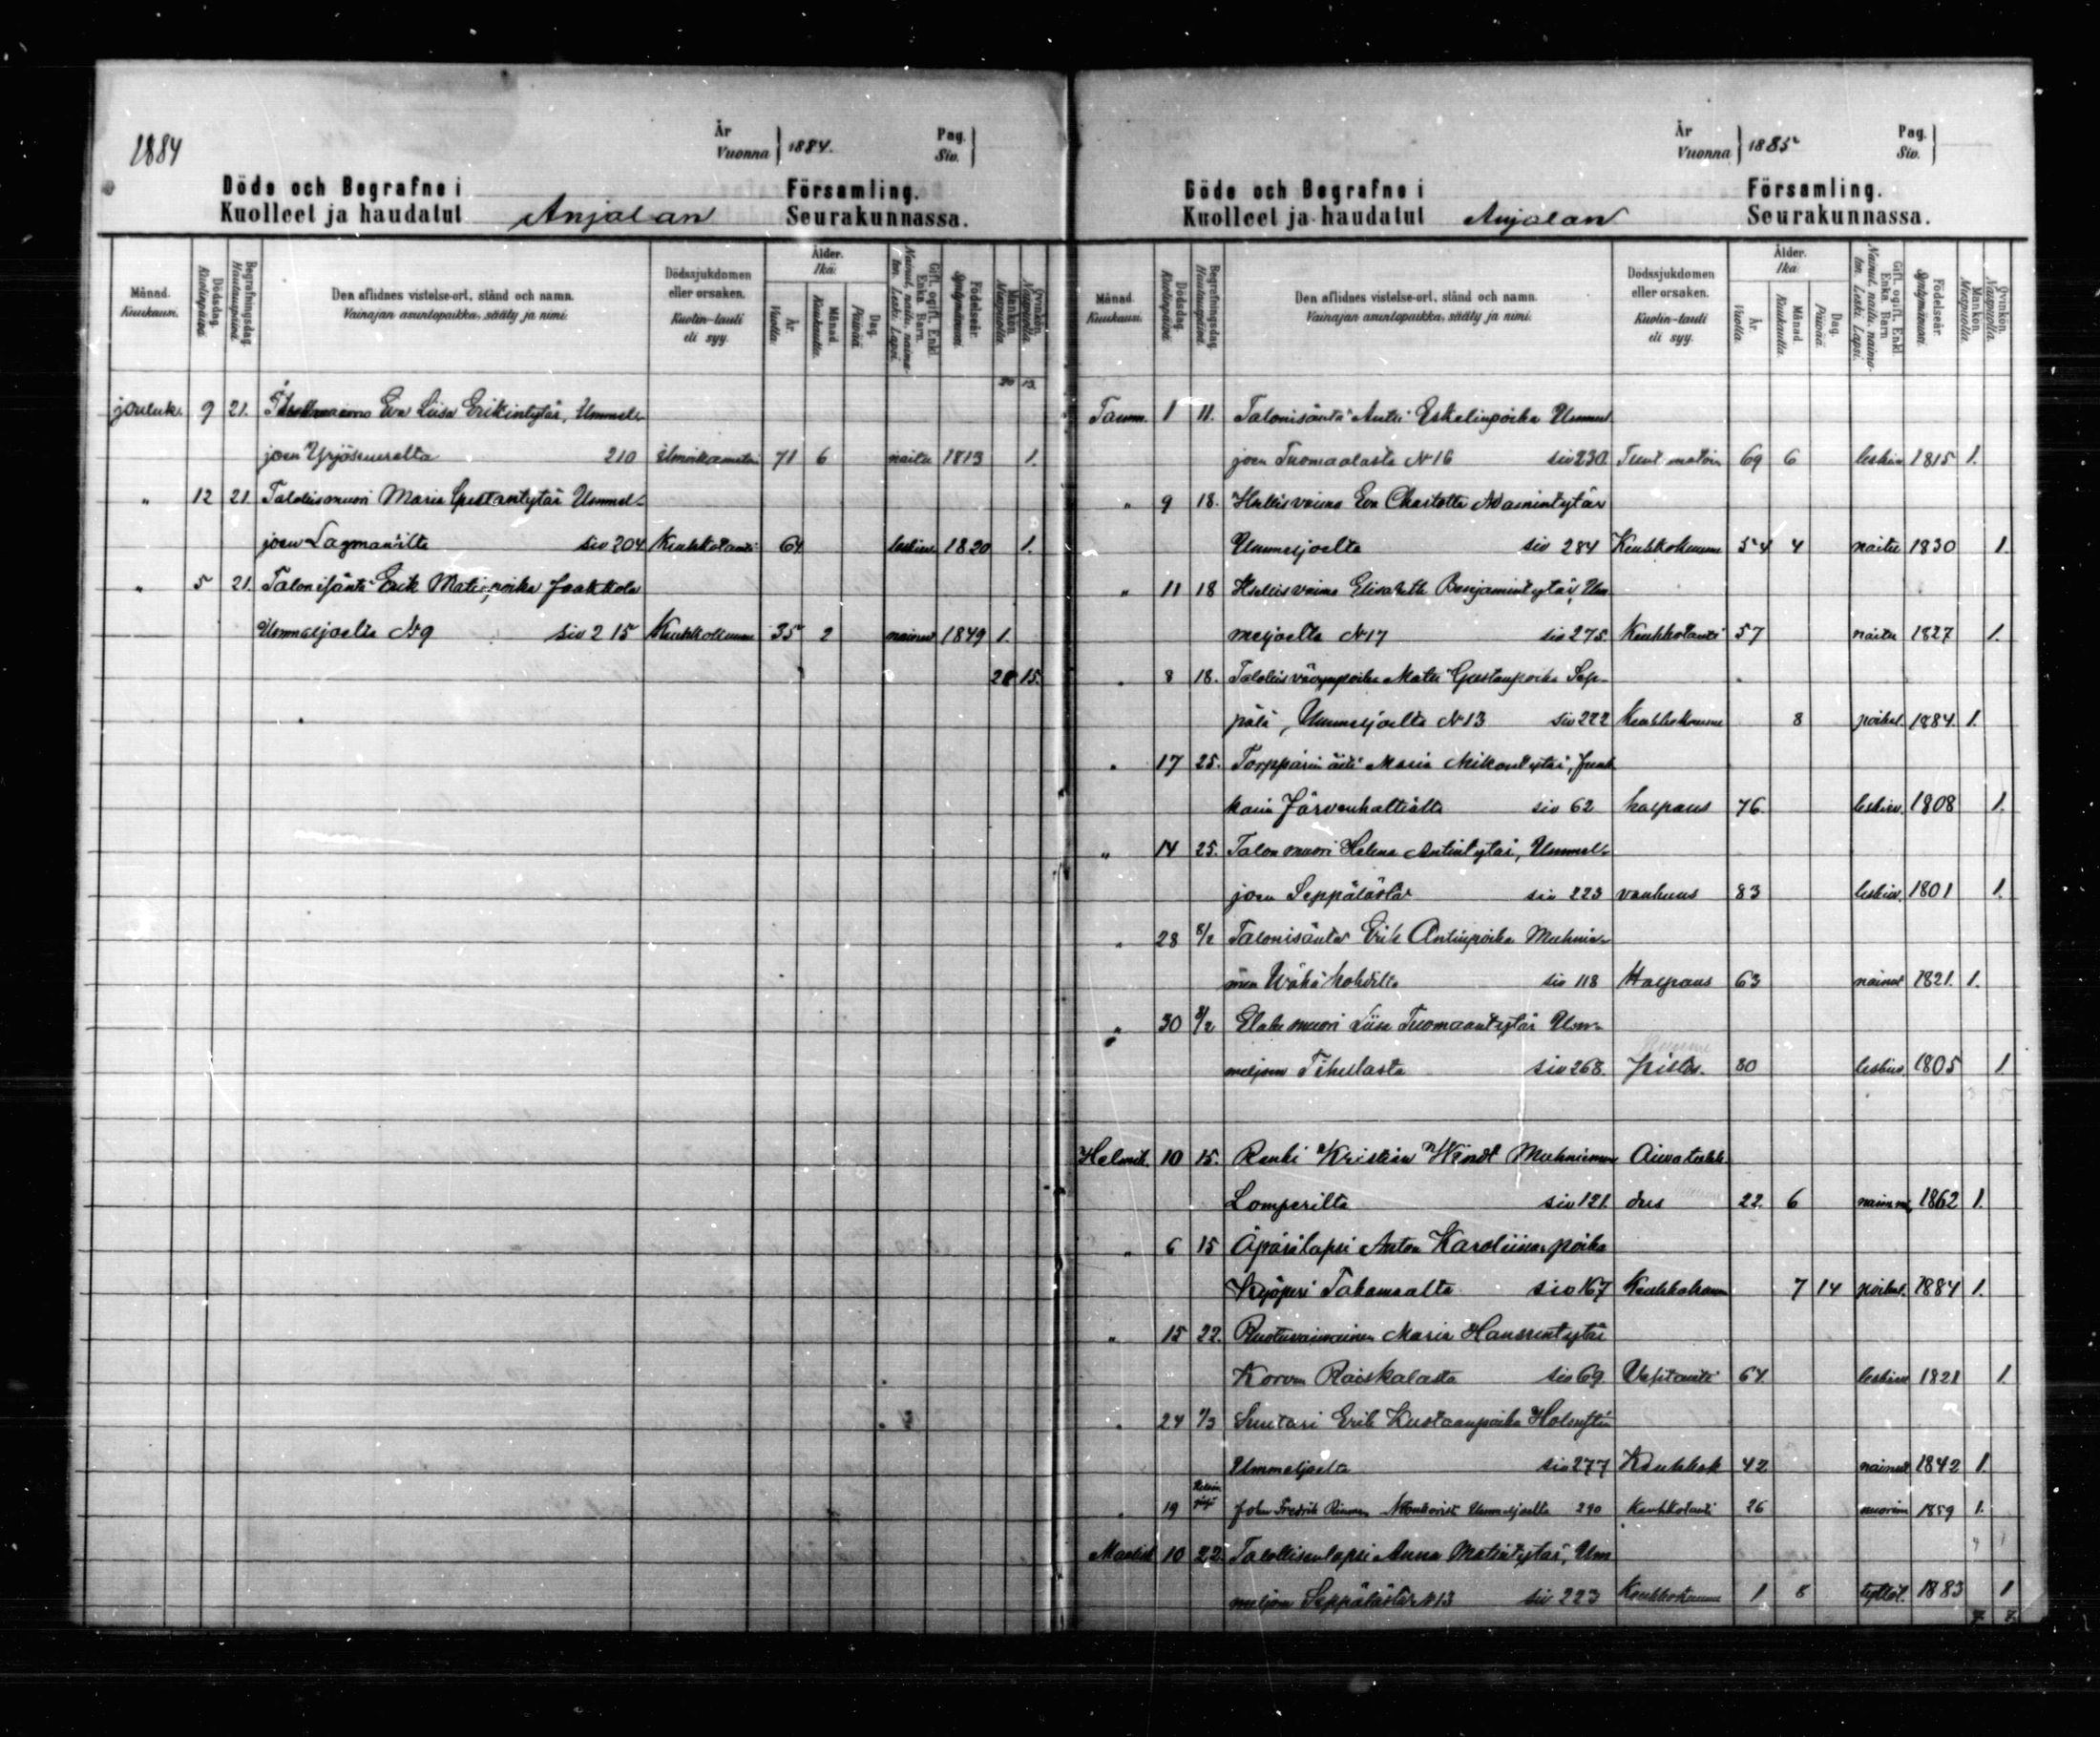 1884
År
Vuonna } 1884.
Pag.
Siv. }
Döde och Begrafne i Församling.
Kuolleet ja haudatut Anjalan Seurakunnassa.
Månad. Kuukausi.
Dödsdag. Kuolinpäivä.
Begrafningsdag. Hautauspäivä.
Den aflidnes vistelse-ort, stånd och namn.
Vainajan asuntopaikka, sääty ja nimi.
Dödssjukdomen eller orsaken.
Kuolin-tauti eli syy.
Ålder. Ikä.
År. Vuotta.
Månad. Kuukautta.
Dag. Päivää.
Gift, ogift. Enkl. Enka. Barn.
Nainut, naitu, naimaton. Leski. Lapsi.
Födelseår. Syntymävuosi.
Mankön. Miespuolia.
Qvinkön. Naispuolia.
20 13.
jouluk. 9 21. Eva Liisa Erikintytär, Ummel-
joen Yrjöseuralta 210 71 6 naitu 1813 1.
" 12 21. Maria Gustantytär Ummel-
joen Lagmanilta siv 204 Keuhkotauti 64 leskiv. 1820 1.
" 5 21. Talonisäntä Erik Matinpoika Jaakkola
Ummeljoelta N 9 siv 215 Keuhkokuume 35 2 nainut 1849 1.
28 15.
År
Vuonna } 1885
Pag.
Siv. }
Döde och Begrafne i Församling.
Kuolleet ja haudatut Anjalan Seurakunnassa.
Månad. Kuukausi.
Dödsdag. Kuolinpäivä.
Begrafningsdag. Hautauspäivä.
Den aflidnes vistelse-ort, stånd och namn.
Vainajan asuntopaikka, sääty ja nimi.
Dödssjukdomen eller orsaken.
Kuolin-tauti eli syy.
Ålder. Ikä.
År. Vuotta.
Månad. Kuukautta.
Dag. Päivää.
Gift, ogift. Enkl. Enka. Barn.
Nainut, naitu, naimaton. Leski. Lapsi.
Födelseår. Syntymävuosi.
Mankön. Miespuolia.
Qvinkön. Naispuolia.
Tamm. 1 11. Talonisäntä Antti Eskelinpoika Ummel
joen Tuomaalasta N 16 siv 230. Tuntematoin 69 6 leskiv 1815 1.
" 9 18. Eva Charlotta Adamintytär
Ummeljoelta siv 284 Keuhkokuume 54 4 naitu 1830 1.
" 11 18 Elisabeth Benjamintytär, Um
meljoelta N 17 siv 275. Keuhkotauti 57 naitu 1827 1.
" 8 18. Matti Gustanpoika Sep-
pälä, Ummeljoelta N 13 siv 222 Keuhkokuume 8 poikal. 1884. 1.
" 17 25. Torpparin äiti Maria Mikontytär,
Järvenhaltialta siv 62 halpaus 76. leskiv. 1808 1.
" 14 25. Talon muori Helena Antintytär, Ummel-
joen Seppälästä siv 223 vanhuus 83 leskiv. 1801 1.
" 28 8/2 Talonisäntä Erik Antinpoika Muhnie-
men siv 118 Halpaus 63 nainut 1821. 1.
" 30 8/2 muori Liisa Tuomaantytär Um-
meljoen Tihulasta siv 268. pistos. 80 leskiv 1805 1
Helmik. 10 15. Renki Kristian Muhniemen Aivotuleh
Lomperilta siv 121. dus 22. 6 1862 1.
" 6 15 Äpärälapsi Anton Karoliinan poika
Takamaalta siv 167 Keuhkokuum 7 14 poikal. 1884 1.
" 15 22. Ruotuvaivainen Maria Hanssintytär
Korven Raiskalasta siv 69 Vesitauti 64. leskiv 1821 1.
" 24 1/3 Suutari Erik Kustaanpoika
Ummeljoelta siv 277 Keuhkok 42 nainut 1842 1.
" 19 John Fredrik Ummeljoelta 290 Keuhkotauti 26 1859 1.
Maalisk 10 22. Talollisen lapsi Anna Matintytär, Um
meljoen Seppälästä N 13 siv 223 Keuhkokuume 1 8 tyttöl. 1883 1
7. 7.